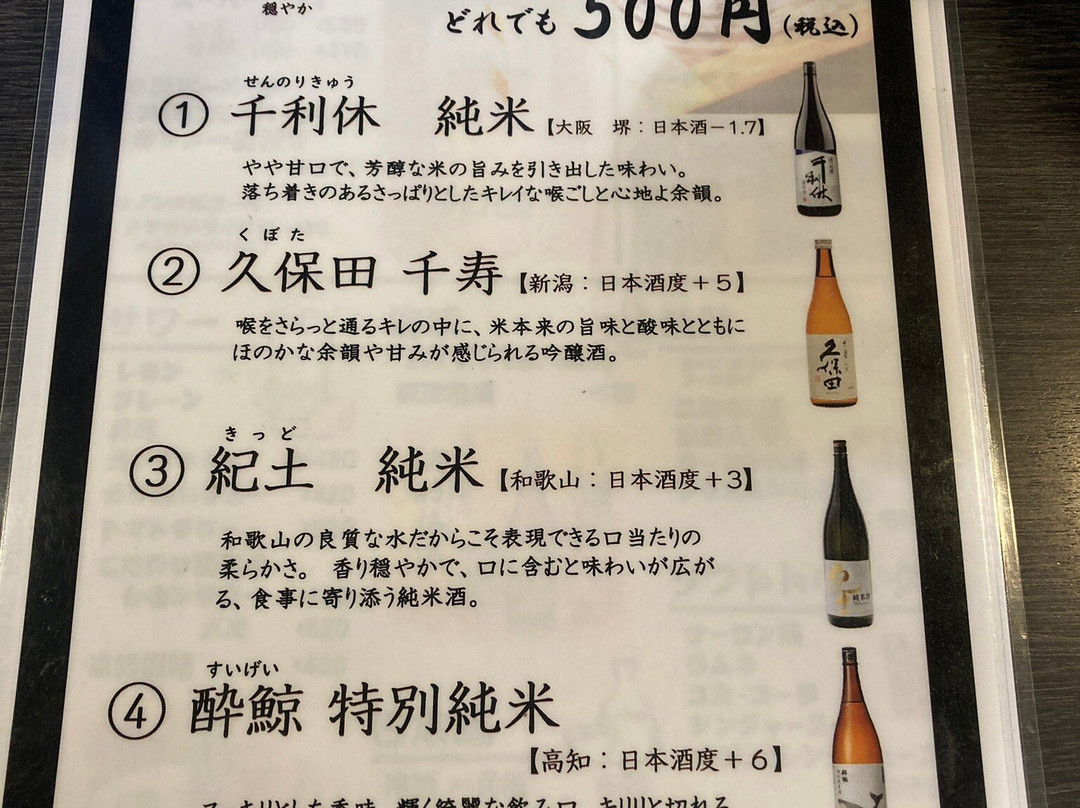 穏やか
どれでも 500円(税込)
せんのりきゅう
① 千利休 純米【大阪 堺：日本酒－1.7】
やや甘口で、芳醇な米の旨みを引き出した味わい。
落ち着きのあるさっぱりとしたキレイな喉ごしと心地よ余韻。
くぼた
② 久保田 千寿【新潟：日本酒度＋5】
喉をさらっと通るキレの中に、米本来の旨味と酸味とともに
ほのかな余韻や甘みが感じられる吟醸酒。
きっど
③ 紀土 純米【和歌山：日本酒度＋3】
和歌山の良質な水だからこそ表現できる口当たりの
柔らかさ。 香り穏やかで、口に含むと味わいが広が
る、食事に寄り添う純米酒。
すいげい
④ 酔鯨 特別純米
【高知：日本酒度＋6】
千利休
久保田
純米酒